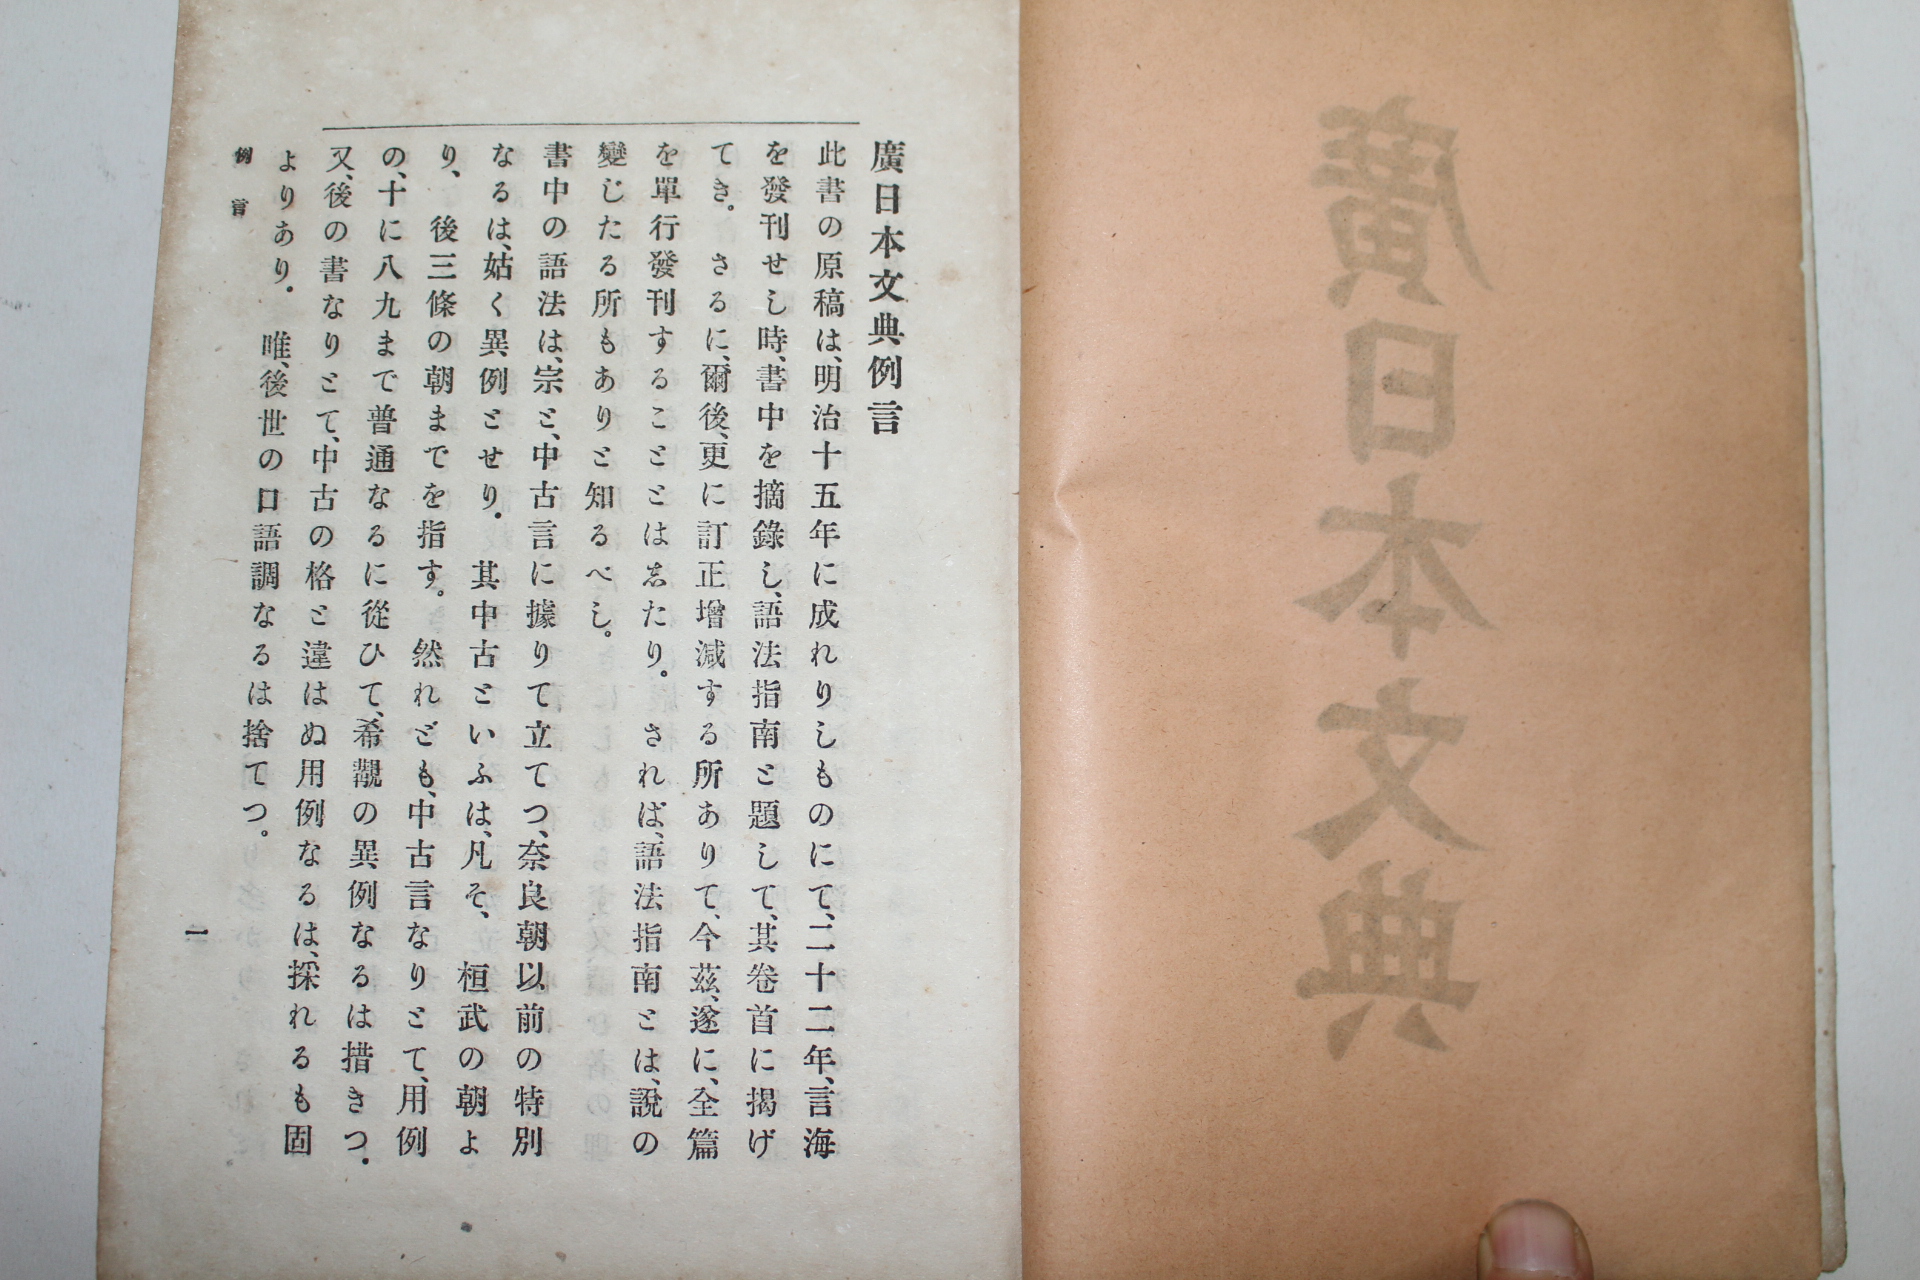 廣日本文典
廣日本文典例言
此書の原稿は、明治十五年に成れりしものにて、二十二年、言海
を發刊せし時、書中を摘錄し、語法指南と題して、其卷首に揭げ
てき。さるに、爾後、更に訂正增減する所ありて、今茲、遂に、全篇
を單行發刊することとはゑたり。されば、語法指南とは、說の
變じたる所もありと知るべし。
書中の語法は、宗と、中古言に據りて立てつ、奈良朝以前の特別
なるは、姑く異例とせり。其中古といふは、凡そ、桓武の朝よ
り、後三條の朝までを指す。然れども、中古言なりとて、用例
の、十に八九まで普通なるに從ひて、希覯の異例なるは措きつ。
又、後の書なりとて、中古の格と違はぬ用例なるは、採れるも固
よりあり。唯、後世の口語調なるは捨てつ。
例言
一